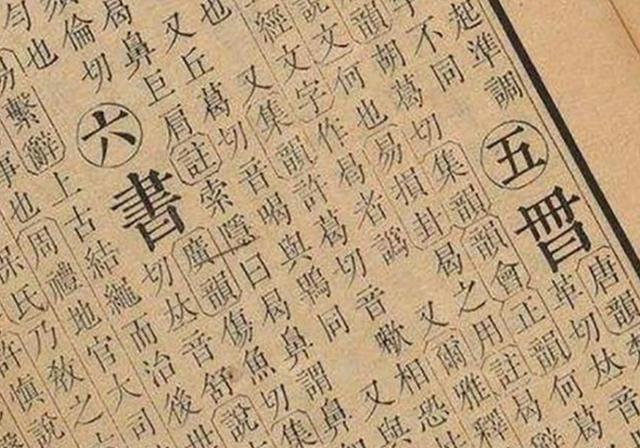 唐韻
革切𠀤音
起準調
五
不同
集韻韻會正韻何
胡葛切
易損卦曷之用註
韻
何也
曷者譌
又爾雅釋
說文
字作
許葛切音歇
相恐
經文
集韻音喝與鶡同
又與
又
葛切
索隱曰曷鼻謂鼻
也丘
註
廣韻傷魚切集
又
巨肩
切𠀤音舒說
曷鼻
六
書
倫切
上古結繩而治後世
也
繫辭
周禮地官大司
易
事也
保氏乃教之
許慎說